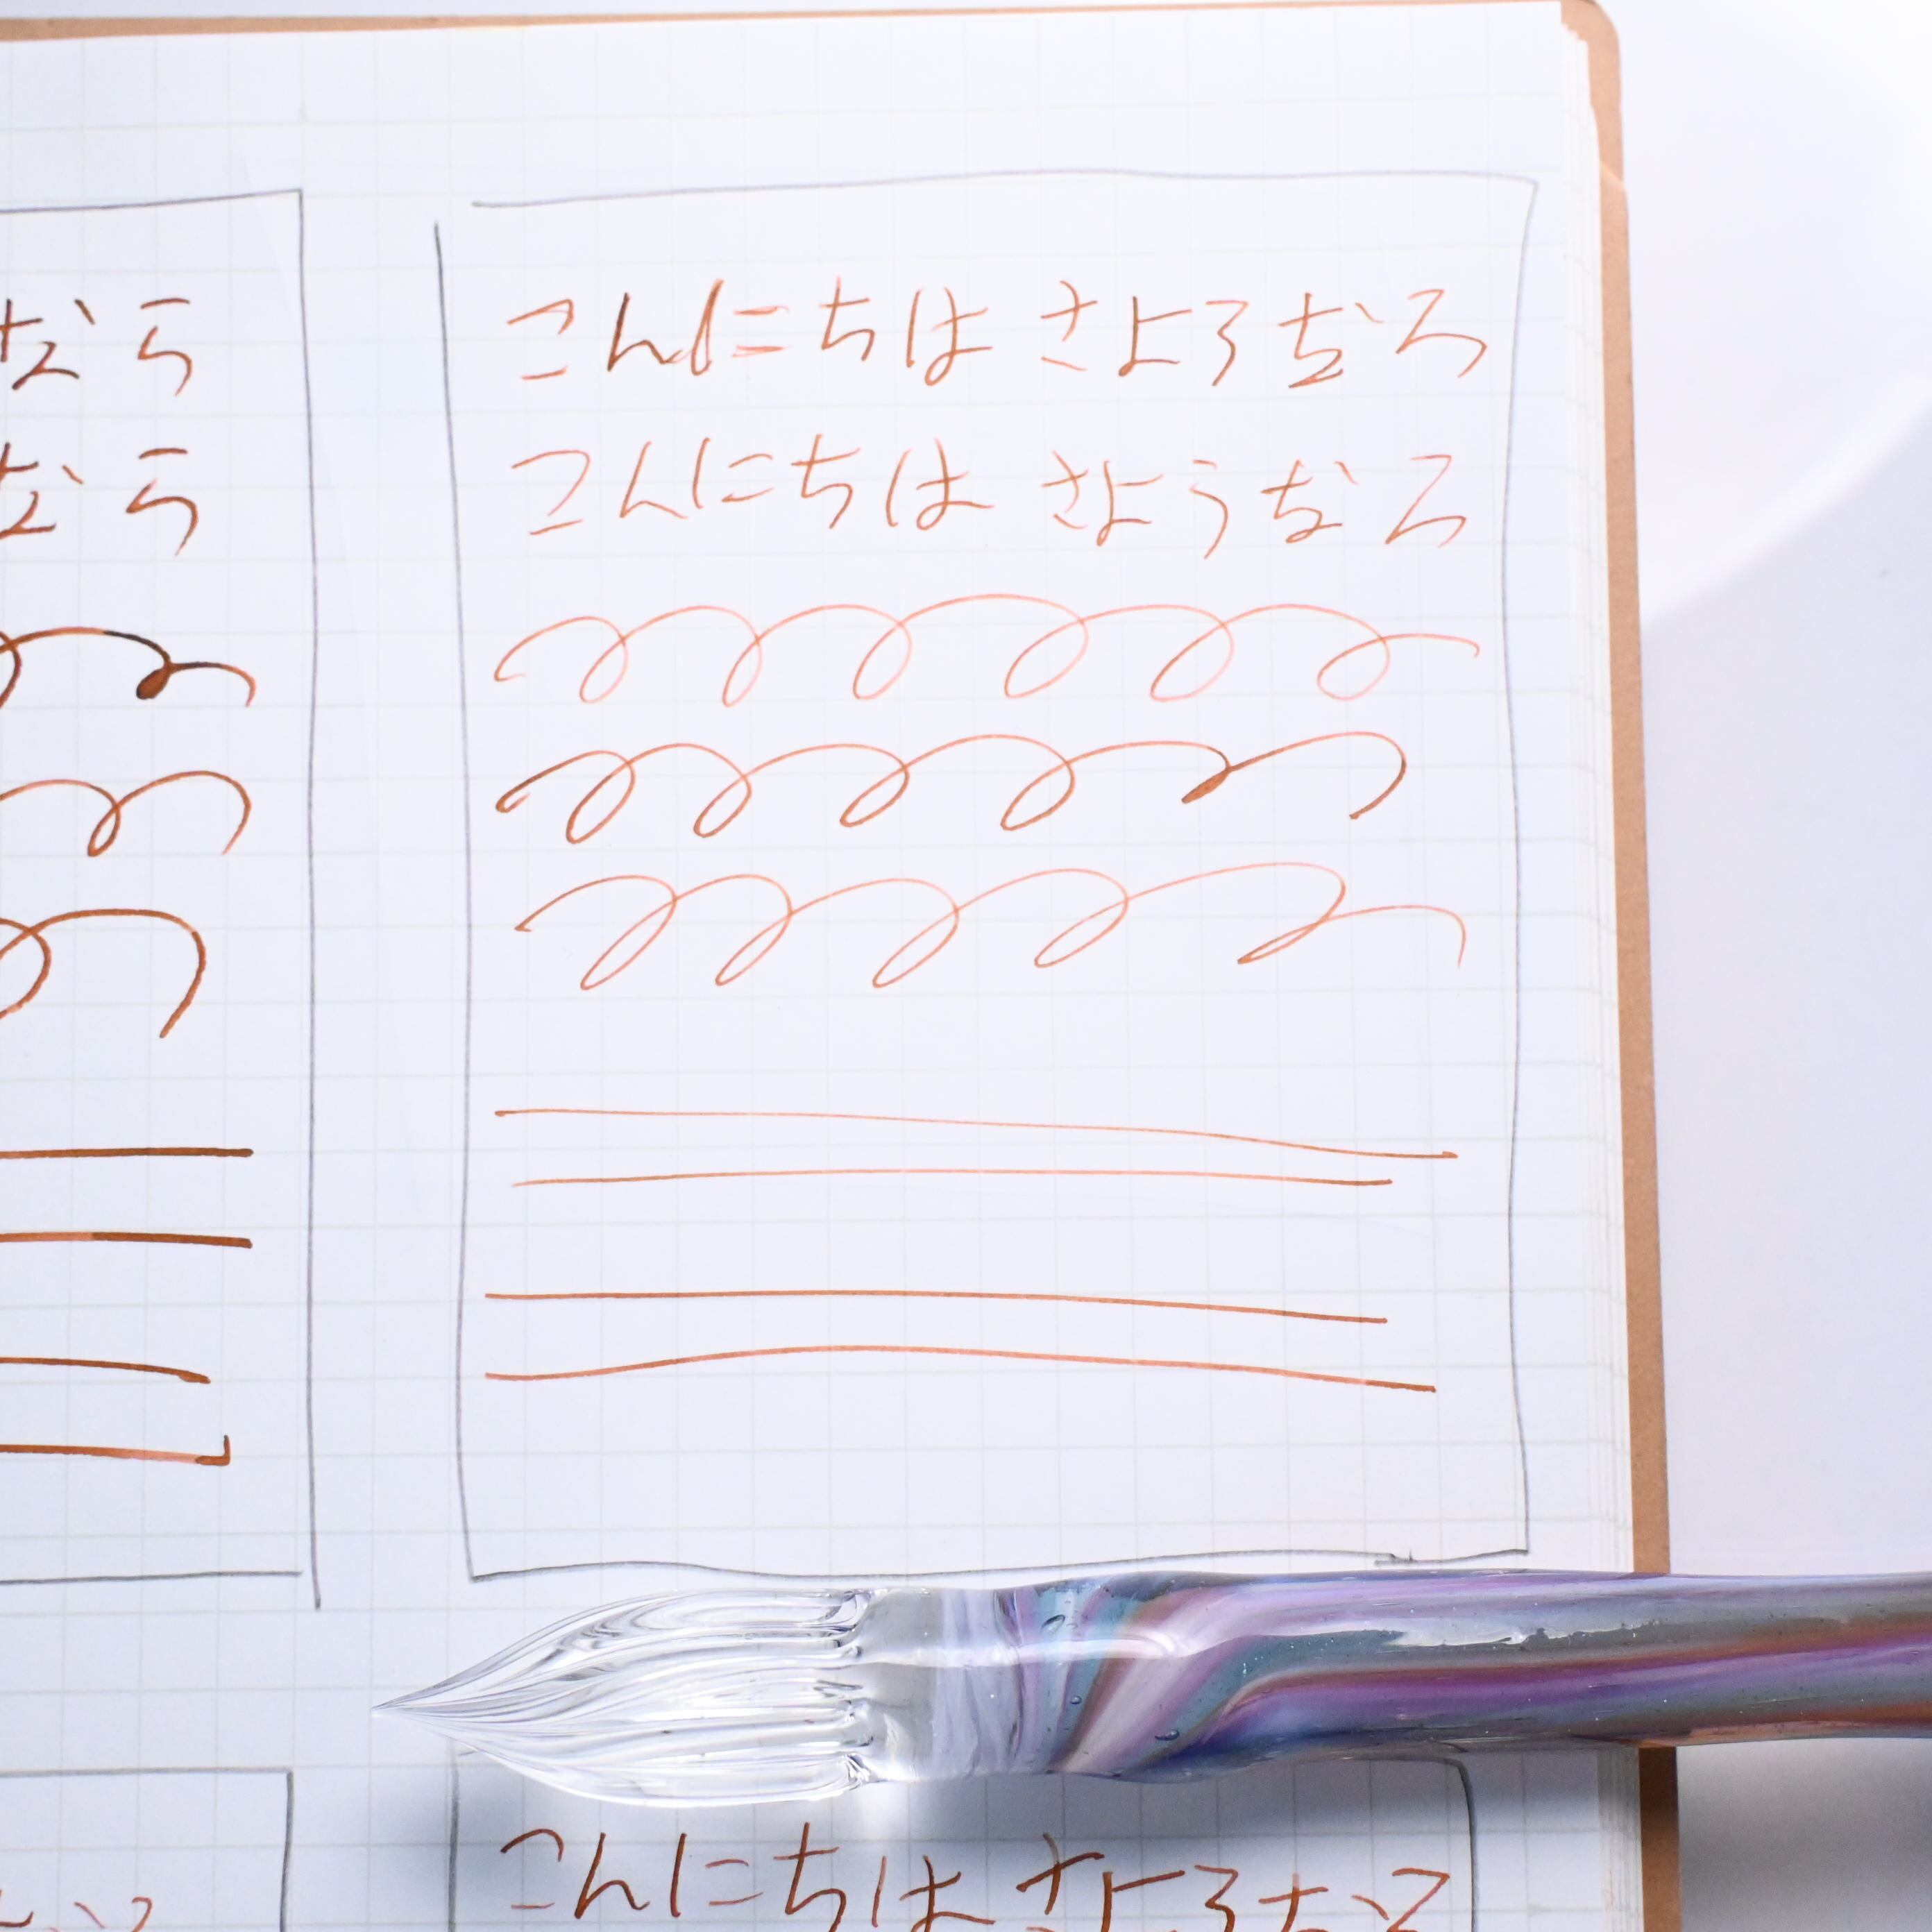 なら
なら
こんにちは さようなら
こんにちは さようなら
こんにちは さようなら